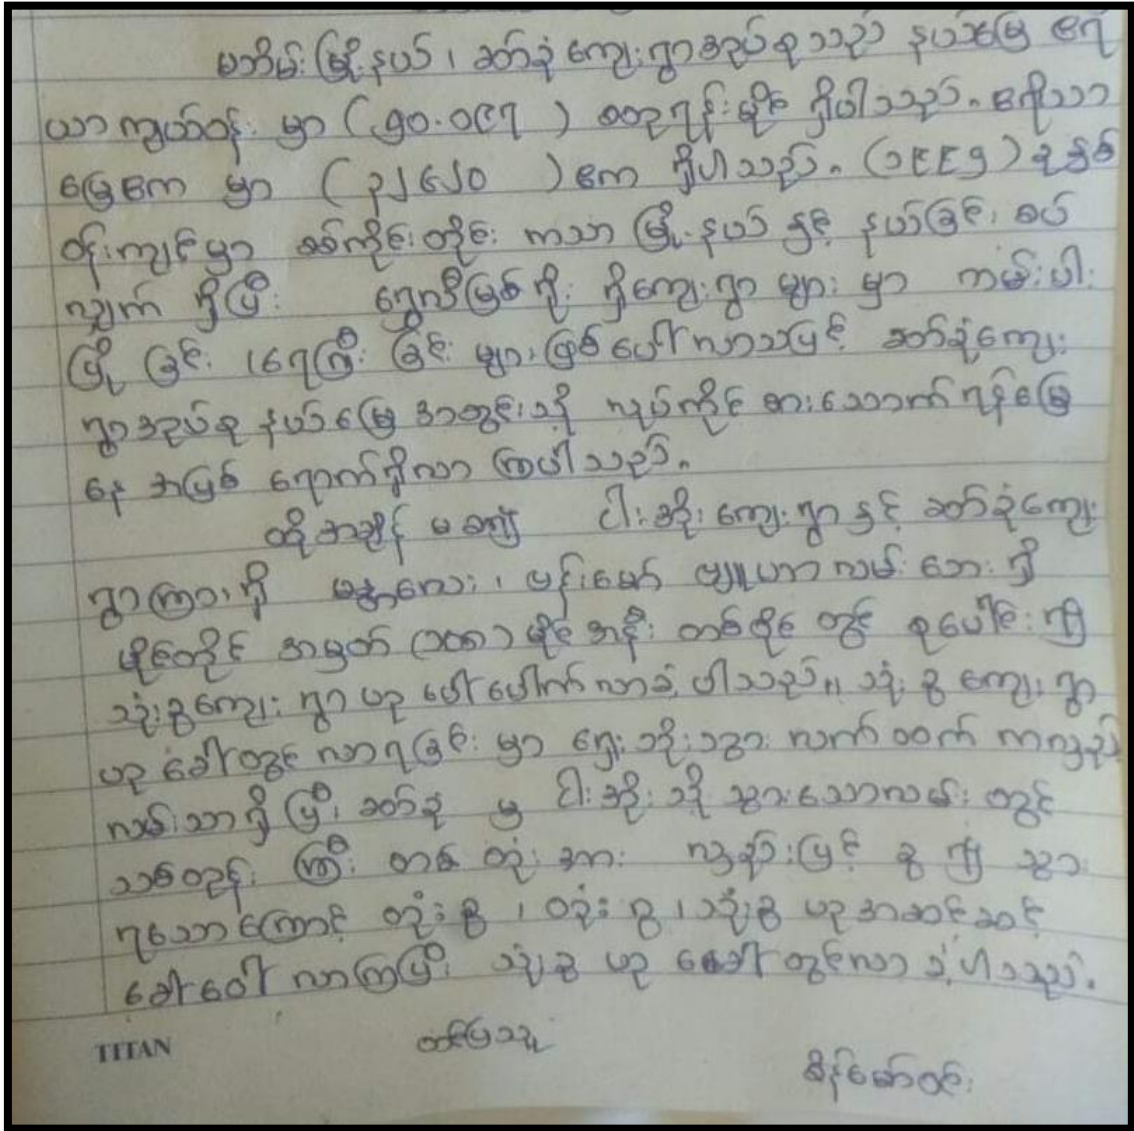 မဘိမ်းမြို့နယ်၊ ဆတ်ခုံကျေးရွာအုပ်စုသည် နယ်မြေ ဧရိ
ယာကျယ်ဝန်းမှာ (၅၀.၀၄၇) စတုရန်းမိုင် ရှိပါသည်. ဧရိယာ
မြေဧက မှာ ( ၃၂၆၂၀ ) ဧက ရှိပါသည်. (၁၉၉၅) ခုနှစ်
ဝန်းကျင်မှာ စစ်ကိုင်းတိုင်း ကသာ မြို့နယ် နှင့် နယ်ခြင်း စပ်
လျှက် ရှိပြီး ရွှေလီမြစ်ကိုး ရှိကျေးရွာ များ မှာ ကမ်းပါး
ပြို ခြင်း ၊ရေကြီး ခြင်း များဖြစ်ပေါ်လာသဖြင့် ဆတ်ခုံကျေး
ရွာအုပ်စု နယ်မြေ အတွင်းသို့ လုပ်ကိုင် စားသောက်ရန်မြေ
နေ အဖြစ် ရောက်ရှိလာ ကြပါသည်.
ထိုအချိန် မစ၍ ငါးအိုးကျေးရွာနှင့် ဆတ်ခုံကျေး
ရွာကြားရှိ မန္တလေး ၊ မုန်းမော် ဗျူဟာလမ်းဘေး ရှိ
မိုင်တိုင် အမှတ် (၁၀၈) မိုင် အနီး တစ်ဝိုင် တွင် စုပေါင်း၍
သုံးခွကျေးရွာ ဟု ပေါ်ပေါက်လာခဲ့ပါသည်။ သုံးခွကျေးရွာ
ဟု ခေါ်တွင်လာရခြင်းမှာ ရှေးသိုးသွား လက်ထက် ကလှည်း
လမ်းသာရှိပြီး ဆတ်ခုံ မှ ငါးအိုး သို့ သွားသောလမ်း တွင်
သစ်တုန်းကြီး တစ်တုံး အား လှည်းဖြင့် ခွ၍ သွား
ရသောကြောင့် တုံးခွ ၊ ထုံးခွ ၊ သုံးခွ ဟုအဆင့်ဆင့်
ခေါ်ဝေါ် လာကြပြီး သုံးခွ ဟု ခေါ်တွင်လာခဲ့ပါသည်.
TITAN
တင်ပြသူ
စိန်မော်ဝင်း